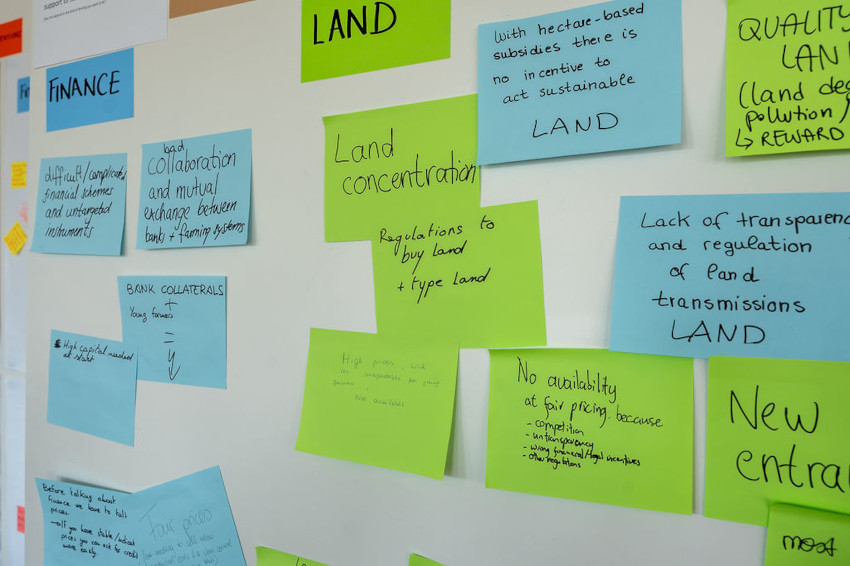 support to
FINANCE
difficult/complicated
financial schemes
and untargeted
instruments
bad
collaboration
and mutual
exchange between
banks + farming systems
BANK COLLATERALS
+
Young farmers
=
High capital needed
at start
Before talking about
finance we have to talk
prices
if you have stable/
prices you can ask for credit
more easily
Fair prices
LAND
Land
concentration
Regulations to
buy land
+ type land
High prices
not available
With hectare-based
subsidies there is
no incentive to
act sustainable
LAND
No availability
at fair pricing because
- competition
- untransparency
- wrong financial/legal incentives
- other regulations
QUALITY
LAN
(land deg
pollution/
↳ REWARD
Lack of transparenc
and regulation
of land
transmissions
LAND
New
entra
most